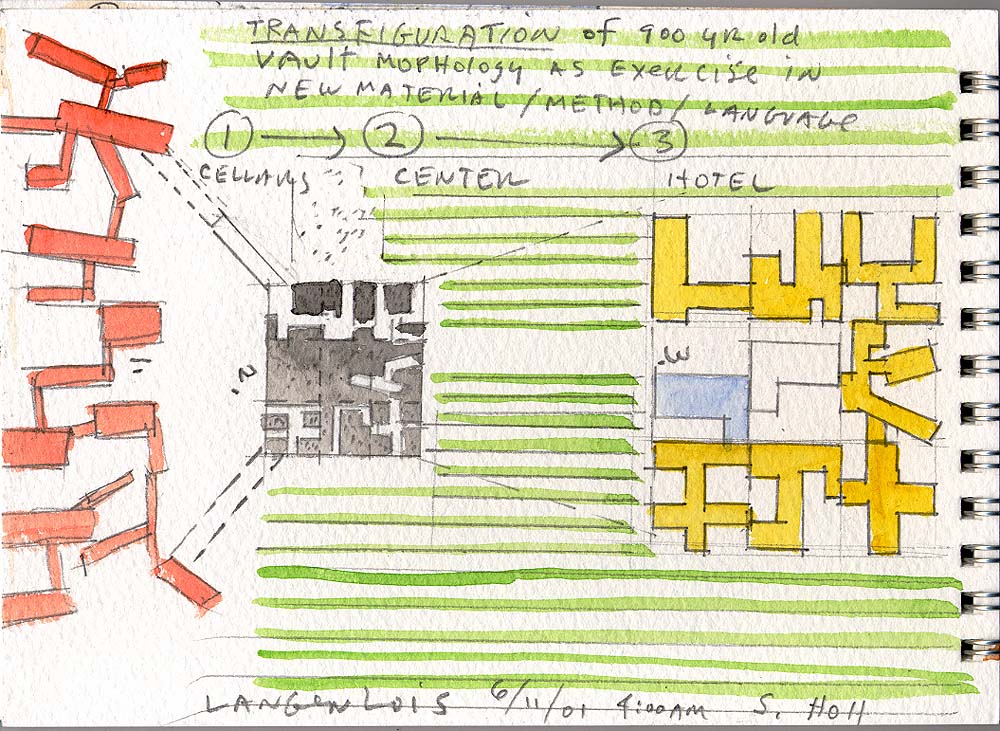 TRANSFIGURATION of 900 yr old
VAULT MOPHOLOGY AS EXERCISE IN
NEW MATERIAL / METHOD / LANGUAGE
1 → 2 → 3
CELLARS CENTER HOTEL
2.
3.
LANGENLOIS 6/11/01 4:00AM S. Holl